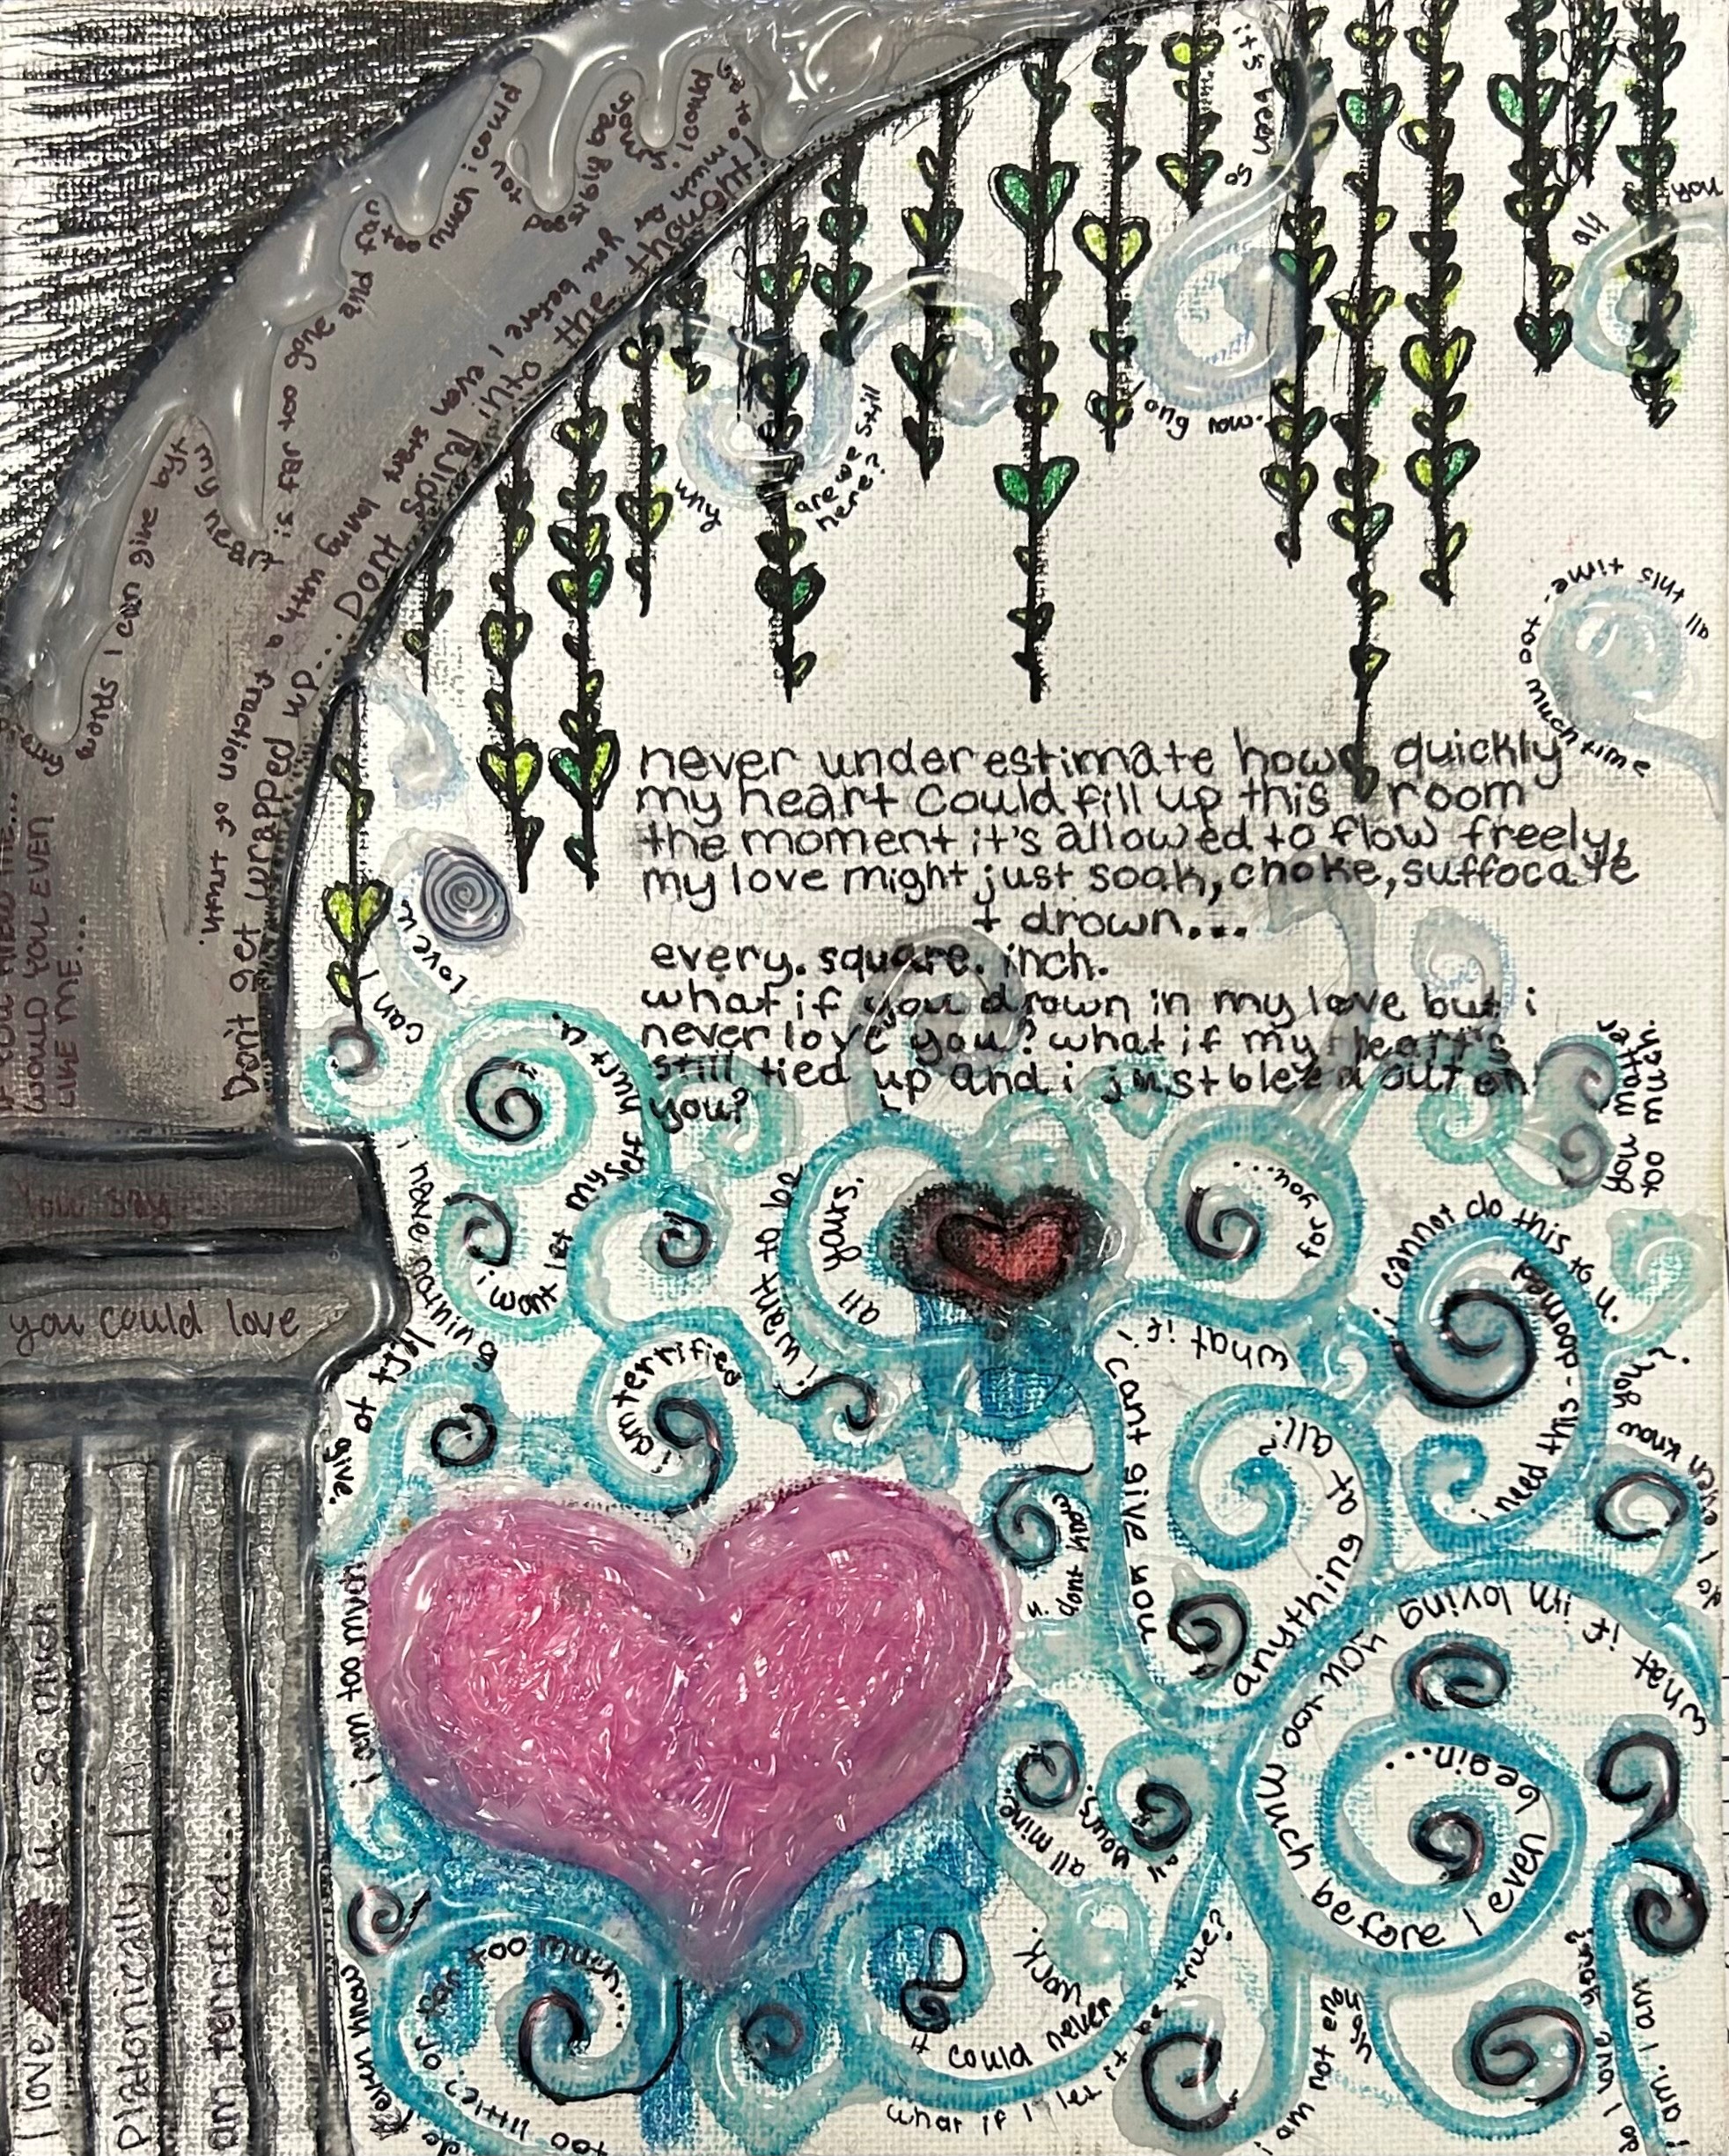 never underestimate how quickly
my heart could fill up this room
the moment it's allowed to flow freely,
my love might just soak, choke, suffocate
+ drown...
every. square. inch.
what if you drown in my love but i
never love you? what if my heart's
still tied up and i just bleed out on
you?
it's been so
long now.
why
are we still
here?
all
you
all this time-
too much time
words I can give but
my heart is far too gone
and far
too much i could
not
possibly be
yours if i could
too much for you before I even start
long with a fraction
start go
Don't get wrapped up... Dont spiral into the thought!
WOULD YOU EVEN
LIKE ME...
You say
you could love
I love
u. so much
platonically I
am terrified...
can I
love u
i wont let myself hurt u.
i have nothing
left to give.
i am terrified
i want to be
all yours.
for
you...
what if i cant give you
anything at all?
i cannot do this to u.
i need this
you matter
too much.
do I even know how?
u.
dont want
what if im loving you
too much before I even begin...
all mine.
all yours.
i am too much
too little? or far too much...
it could never
work
what if I let it be true?
i am not enough
i am. I am.